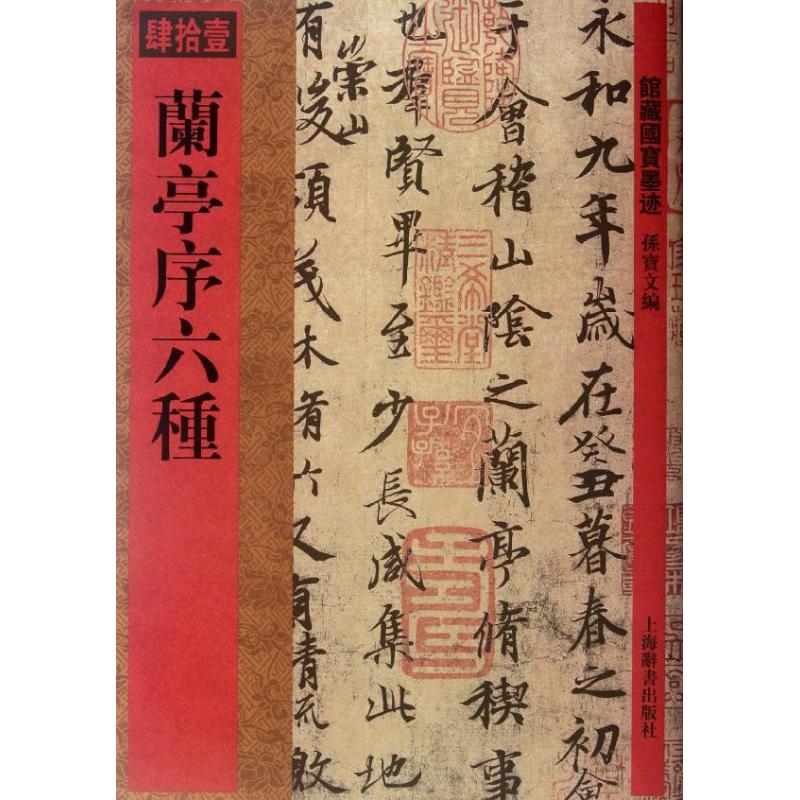 肆拾壹
蘭亭序六種
館藏國寶墨迹
孫寶文編
上海辭書出版社
永和九年歲在癸丑暮春之初會
于會稽山陰之蘭亭脩稧事
也羣賢畢至少長咸集此地
有峻領茂林脩竹又有清流激
崇山
三希堂精鑑璽
宜子孫